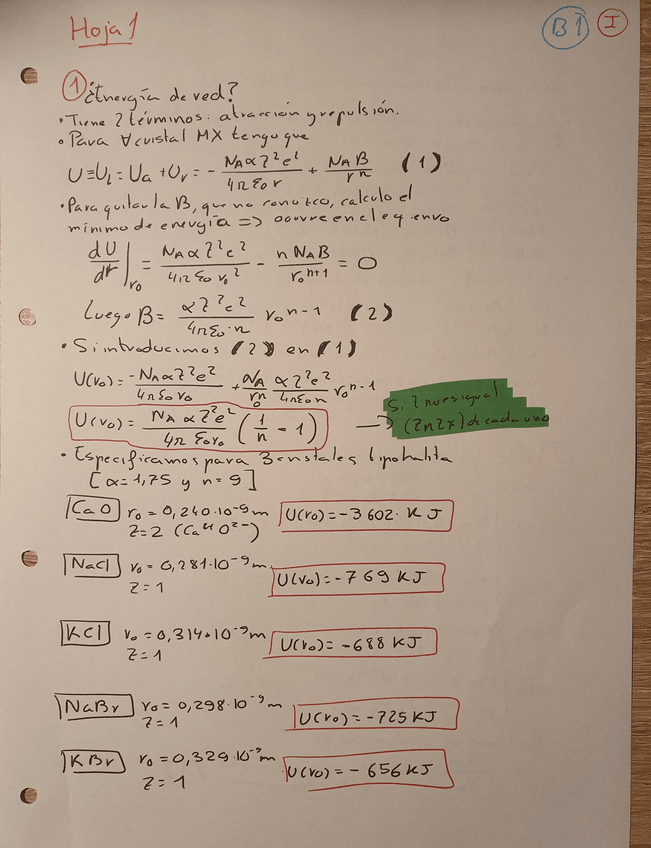 Hoja 1
B1 I
1 ¿Energía de red?
• Tiene 2 términos: atracción y repulsión.
• Para ∀ cristal MX tengo que
U ≡ U_l = U_a + U_r = - N_A α Z² e² / 4π ε₀ r + N_A B / rⁿ (1)
• Para quitar la B, que no conozco, calculo el
mínimo de energía => ocurre en el eq. en r₀
dU/dr |r₀ = N_A α Z² e² / 4π ε₀ r₀² - n N_A B / r₀ⁿ⁺¹ = 0
Luego B = α Z² e² / 4π ε₀ · n r₀ⁿ⁻¹ (2)
• Si introducimos (2) en (1)
U(r₀) = -N_A α Z² e² / 4π ε₀ r₀ + N_A / r₀ⁿ α Z² e² / 4π ε₀ n r₀ⁿ⁻¹
U(r₀) = N_A α Z² e² / 4π ε₀ r₀ (1/n - 1) →
Si Z no es igual
de cada uno
• Especificamos para 3 cristales tipo halita
[α = 1,75 y n = 9]
CaO r₀ = 0,240·10⁻⁹ m U(r₀) = -3602· KJ
Z = 2 (Ca²⁺ O²⁻)
NaCl r₀ = 0,281·10⁻⁹ m U(r₀) = -769 KJ
Z = 1
KCl r₀ = 0,314·10⁻⁹ m U(r₀) = -688 KJ
Z = 1
NaBr r₀ = 0,298·10⁻⁹ m U(r₀) = -725 KJ
Z = 1
KBr r₀ = 0,329·10⁻⁹ m U(r₀) = -656 KJ
Z = 1